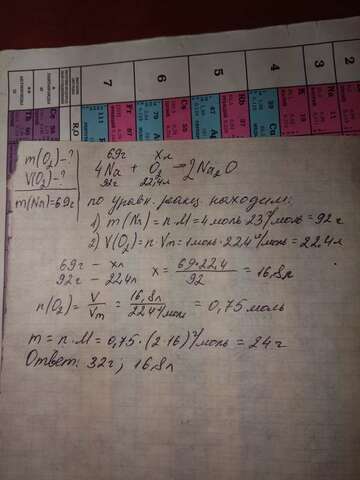 7 6 5 4 3 2
R₂O
m(O₂)-?
V(O₂)-?
m(Na)=69г
69г хл
4Na + O₂ = 2Na₂O
92г 22,4л
по уравн. реакц. находим:
1) m(Na)=n·M=4моль·23г/моль=92г
2) V(O₂)=n·Vm=1моль·22,4л/моль=22,4л
69г – хл
92г – 22,4л
x = 69·22,4 / 92 = 16,8л
n(O₂)= V/Vm = 16,8л / 22,4л/моль = 0,75моль
m = n·M = 0,75·(2·16)г/моль = 24г
Ответ: 32г; 16,8л